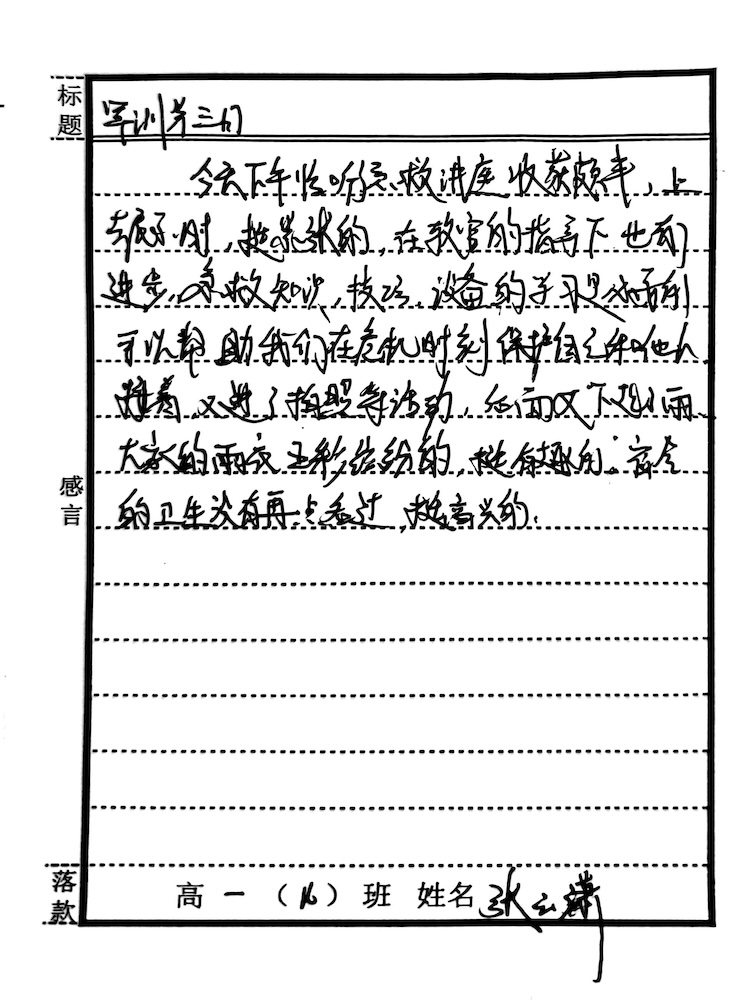 标题
军训第三日
今天下午临听急救讲座收获颇丰，上
去展示时，挺紧张的，在教官的指导下也有
进步，急救知识，技巧，设备的学习是很有利
可以帮助我们在危机时刻保护自己和他人
接着，又进了拍照等活动，后面又下起了雨
大家的雨衣五彩缤纷的，挺有趣的。宿舍
的卫生没有再点名过，挺高兴的。
感言
落款
高一（16）班 姓名 张云